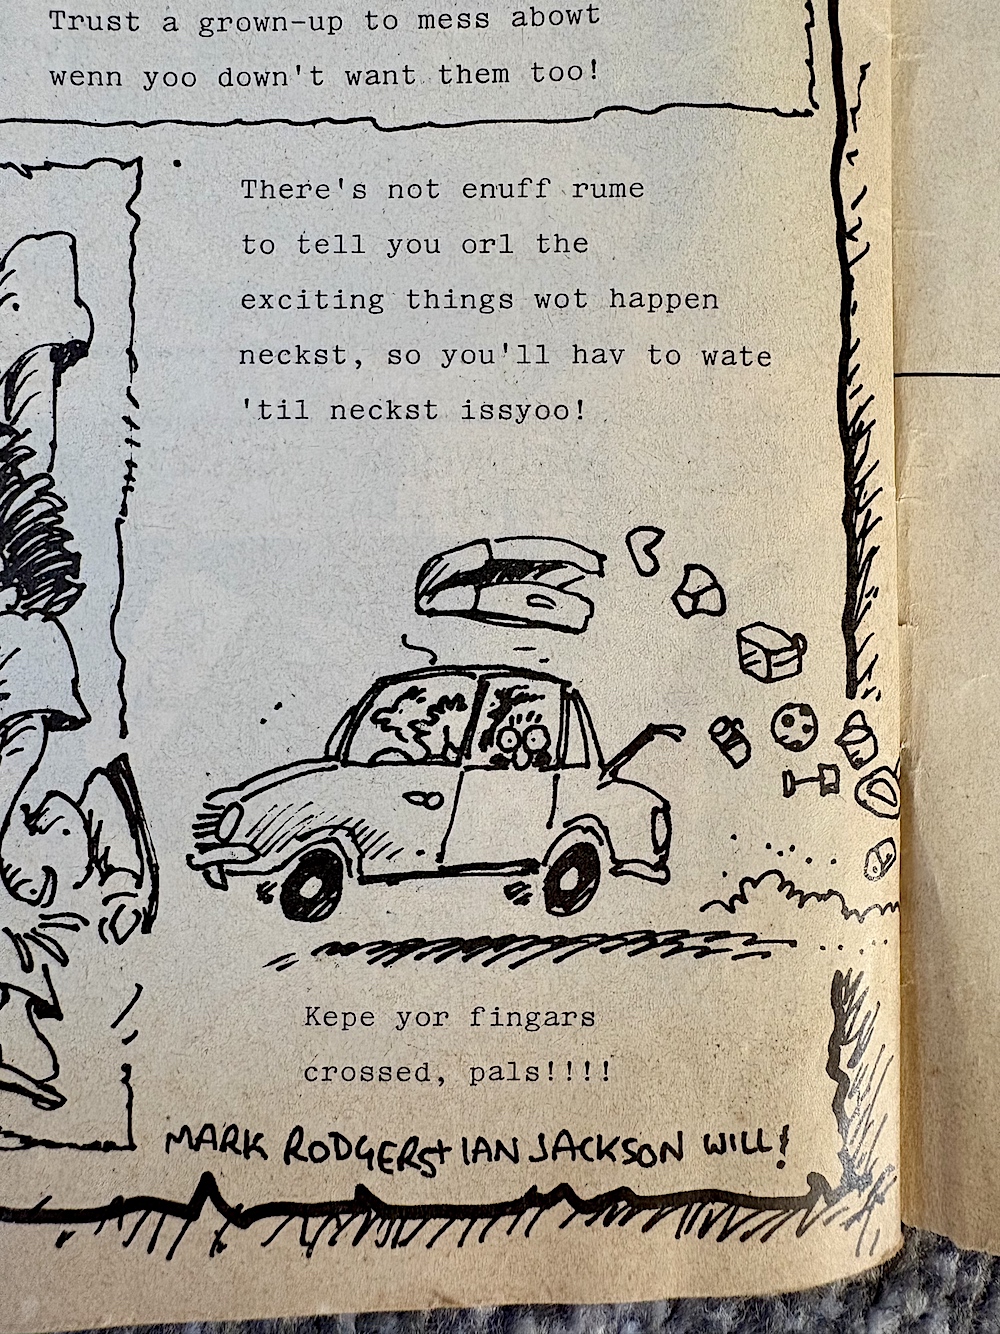 Trust a grown-up to mess abowt
wenn yoo down't want them too!
There's not enuff rume
to tell you orl the
exciting things wot happen
neckst, so you'll hav to wate
'til neckst issyoo!
Kepe yor fingars
crossed, pals!!!!
MARK RODGERS + IAN JACKSON WILL!